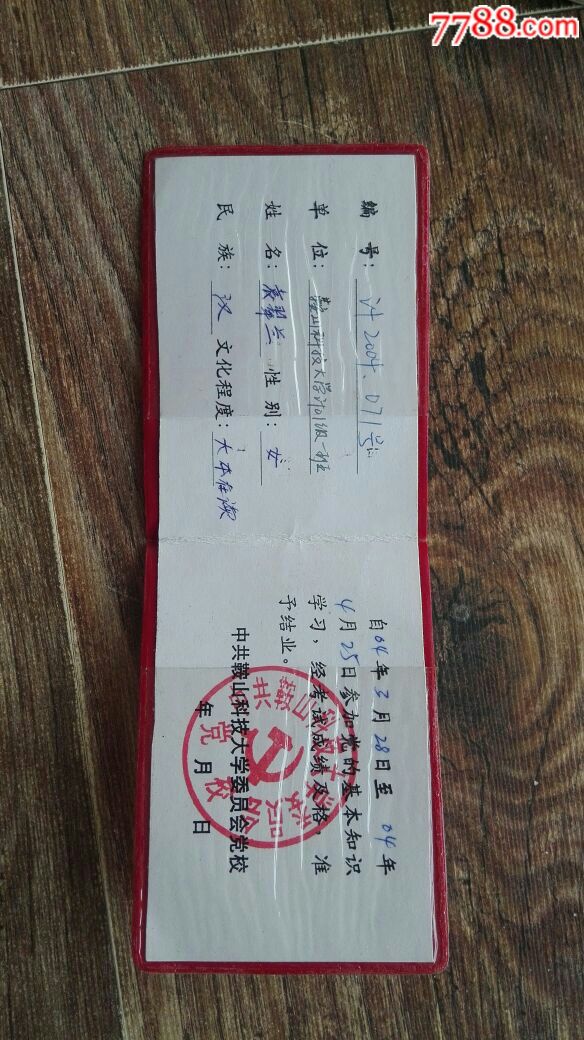 7788.com
编号：计2004.071号
单位：鞍山科技大学计01级一班
姓名：袁翠兰 性别：女
民族：汉 文化程度：大本在读
自04年3月28日至04年
4月25日参加党的基本知识
学习，经考试成绩及格，准
予结业。
中共鞍山科技大学委员会党校
年 月 日